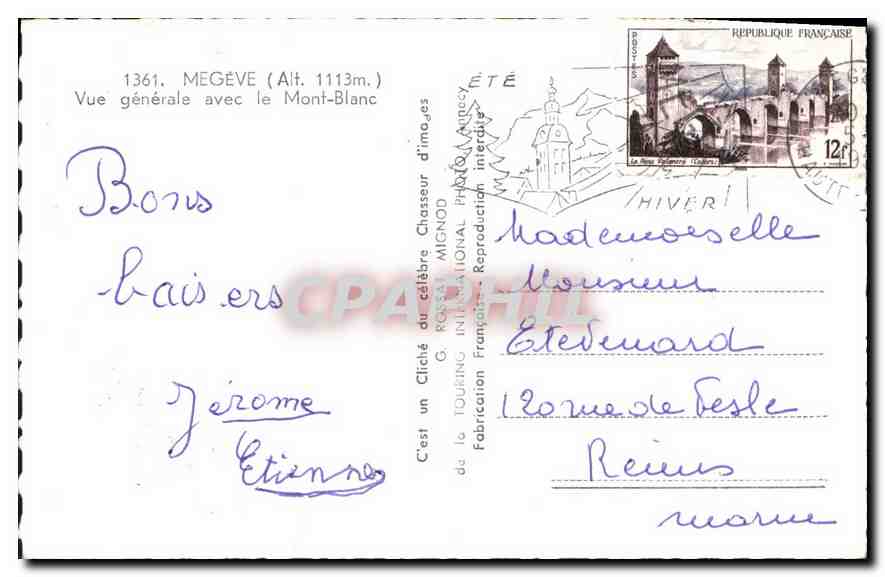 1361. MEGÈVE (Alt. 1113m.)
Vue générale avec le Mont-Blanc
Bons
baisers
Jérome
Etienne
C'est un Cliché du célèbre Chasseur d'images
G. ROSSAT MIGNOD
de la TOURING INTERNATIONAL PHOTO Annecy
Fabrication Française - Reproduction interdite
ÉTÉ
HIVER
RÉPUBLIQUE FRANÇAISE
POSTES
12f
Le Pont Valentré (Cahors)
Mademoiselle
Monsieur
120 rue de Vesle
Reims
Marne
CPAPHIL